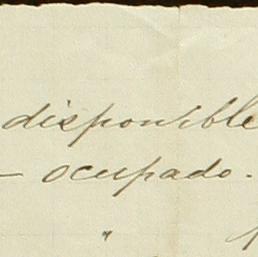 disponible
— ocupado.
"